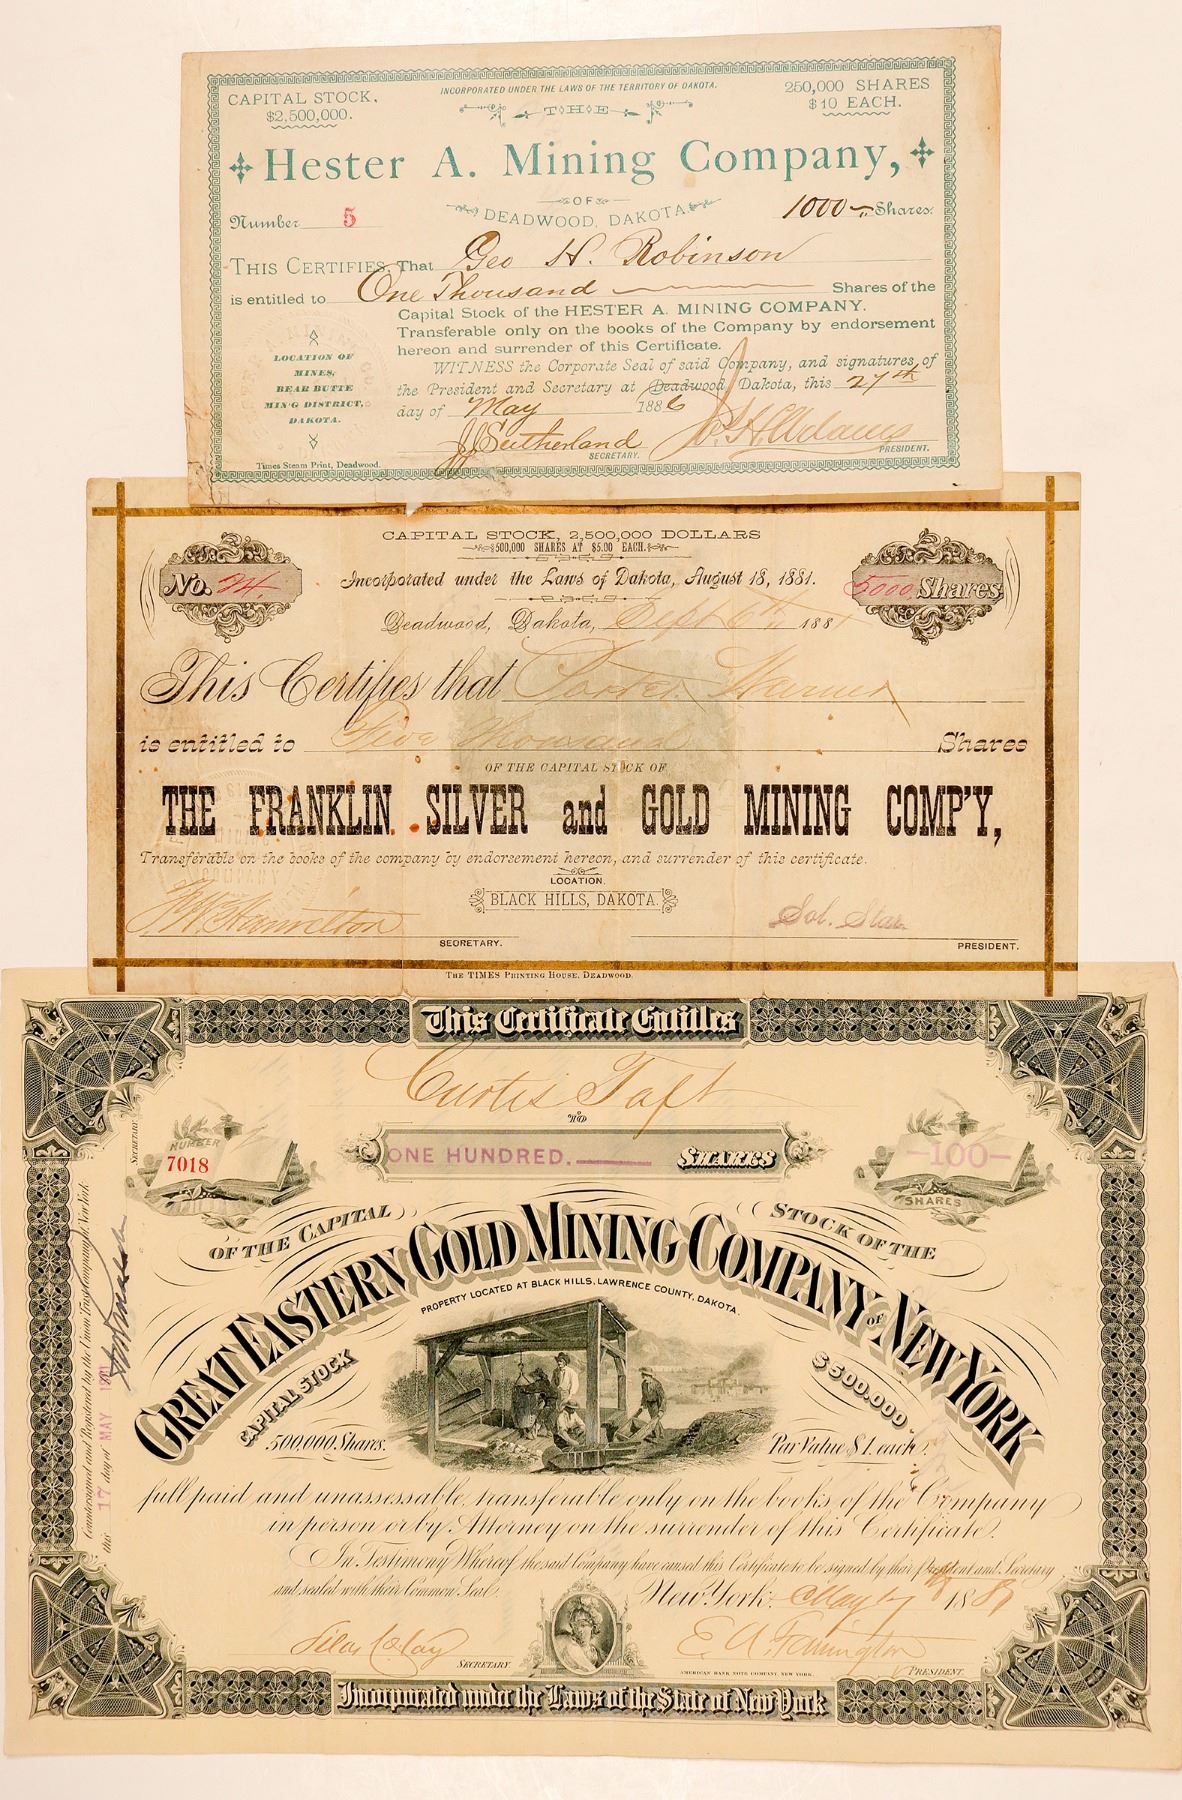 INCORPORATED UNDER THE LAWS OF THE TERRITORY OF DAKOTA.
CAPITAL STOCK, $2,500,000.
250,000 SHARES $10 EACH.
THE
Hester A. Mining Company,
OF
DEADWOOD, DAKOTA.
Number 5
1000 Shares.
THIS CERTIFIES, That Geo H. Robinson
is entitled to One Thousand Shares of the
Capital Stock of the HESTER A. MINING COMPANY.
Transferable only on the books of the Company by endorsement
hereon and surrender of this Certificate.
WITNESS the Corporate Seal of said Company, and signatures of
the President and Secretary at Deadwood, Dakota, this 27th
day of May 1886
LOCATION OF
MINES,
BEAR BUTTE
MIN'G DISTRICT,
DAKOTA.
J Sutherland
SECRETARY.
Adams
PRESIDENT.
Times Steam Print, Deadwood.
CAPITAL STOCK, 2,500,000 DOLLARS
500,000 SHARES AT $5.00 EACH.
No. 24.
Incorporated under the Laws of Dakota, August 18, 1881.
5000 Shares
Deadwood, Dakota, Sept 6th 1881
This Certifies that Porter Warner
is entitled to Five Thousand Shares
OF THE CAPITAL STOCK OF
THE FRANKLIN SILVER and GOLD MINING COMP'Y,
Transferable on the books of the company by endorsement hereon, and surrender of this certificate.
LOCATION.
BLACK HILLS, DAKOTA.
Hamilton
SECRETARY.
Sol. Star
PRESIDENT.
THE TIMES PRINTING HOUSE, DEADWOOD.
This Certificate Entitles
Curtis Taft
TO
NUMBER
7018
ONE HUNDRED. SHARES
-100-
SHARES
OF THE CAPITAL STOCK OF THE
GREAT EASTERN GOLD MINING COMPANY OF NEW YORK
PROPERTY LOCATED AT BLACK HILLS, LAWRENCE COUNTY, DAKOTA.
CAPITAL STOCK $500,000
500,000 Shares. Par Value $1. each.
full paid and unassessable, transferable only on the books of the Company
in person or by Attorney on the surrender of this Certificate.
In Testimony Whereof, the said Company have caused this Certificate to be signed by their President and Secretary
and sealed with their Common Seal.
New York, May 17 188
SECRETARY.
E. A. Farrington
PRESIDENT.
AMERICAN BANK NOTE COMPANY, NEW YORK.
Incorporated under the Laws of the State of New York
Countersigned and Registered by the Union Transfer Company of New York
this 17 day of MAY
SECRETARY.